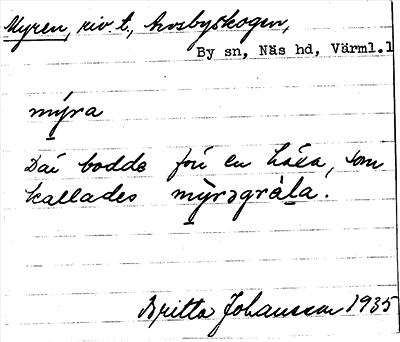 Myren, riv. t., husbyskogen,
By sn, Näs hd, Värml.l
mýra
Där bodde förr en häxa, som
kallades mỳrəgrä̀la.
Britta Johansson 1935